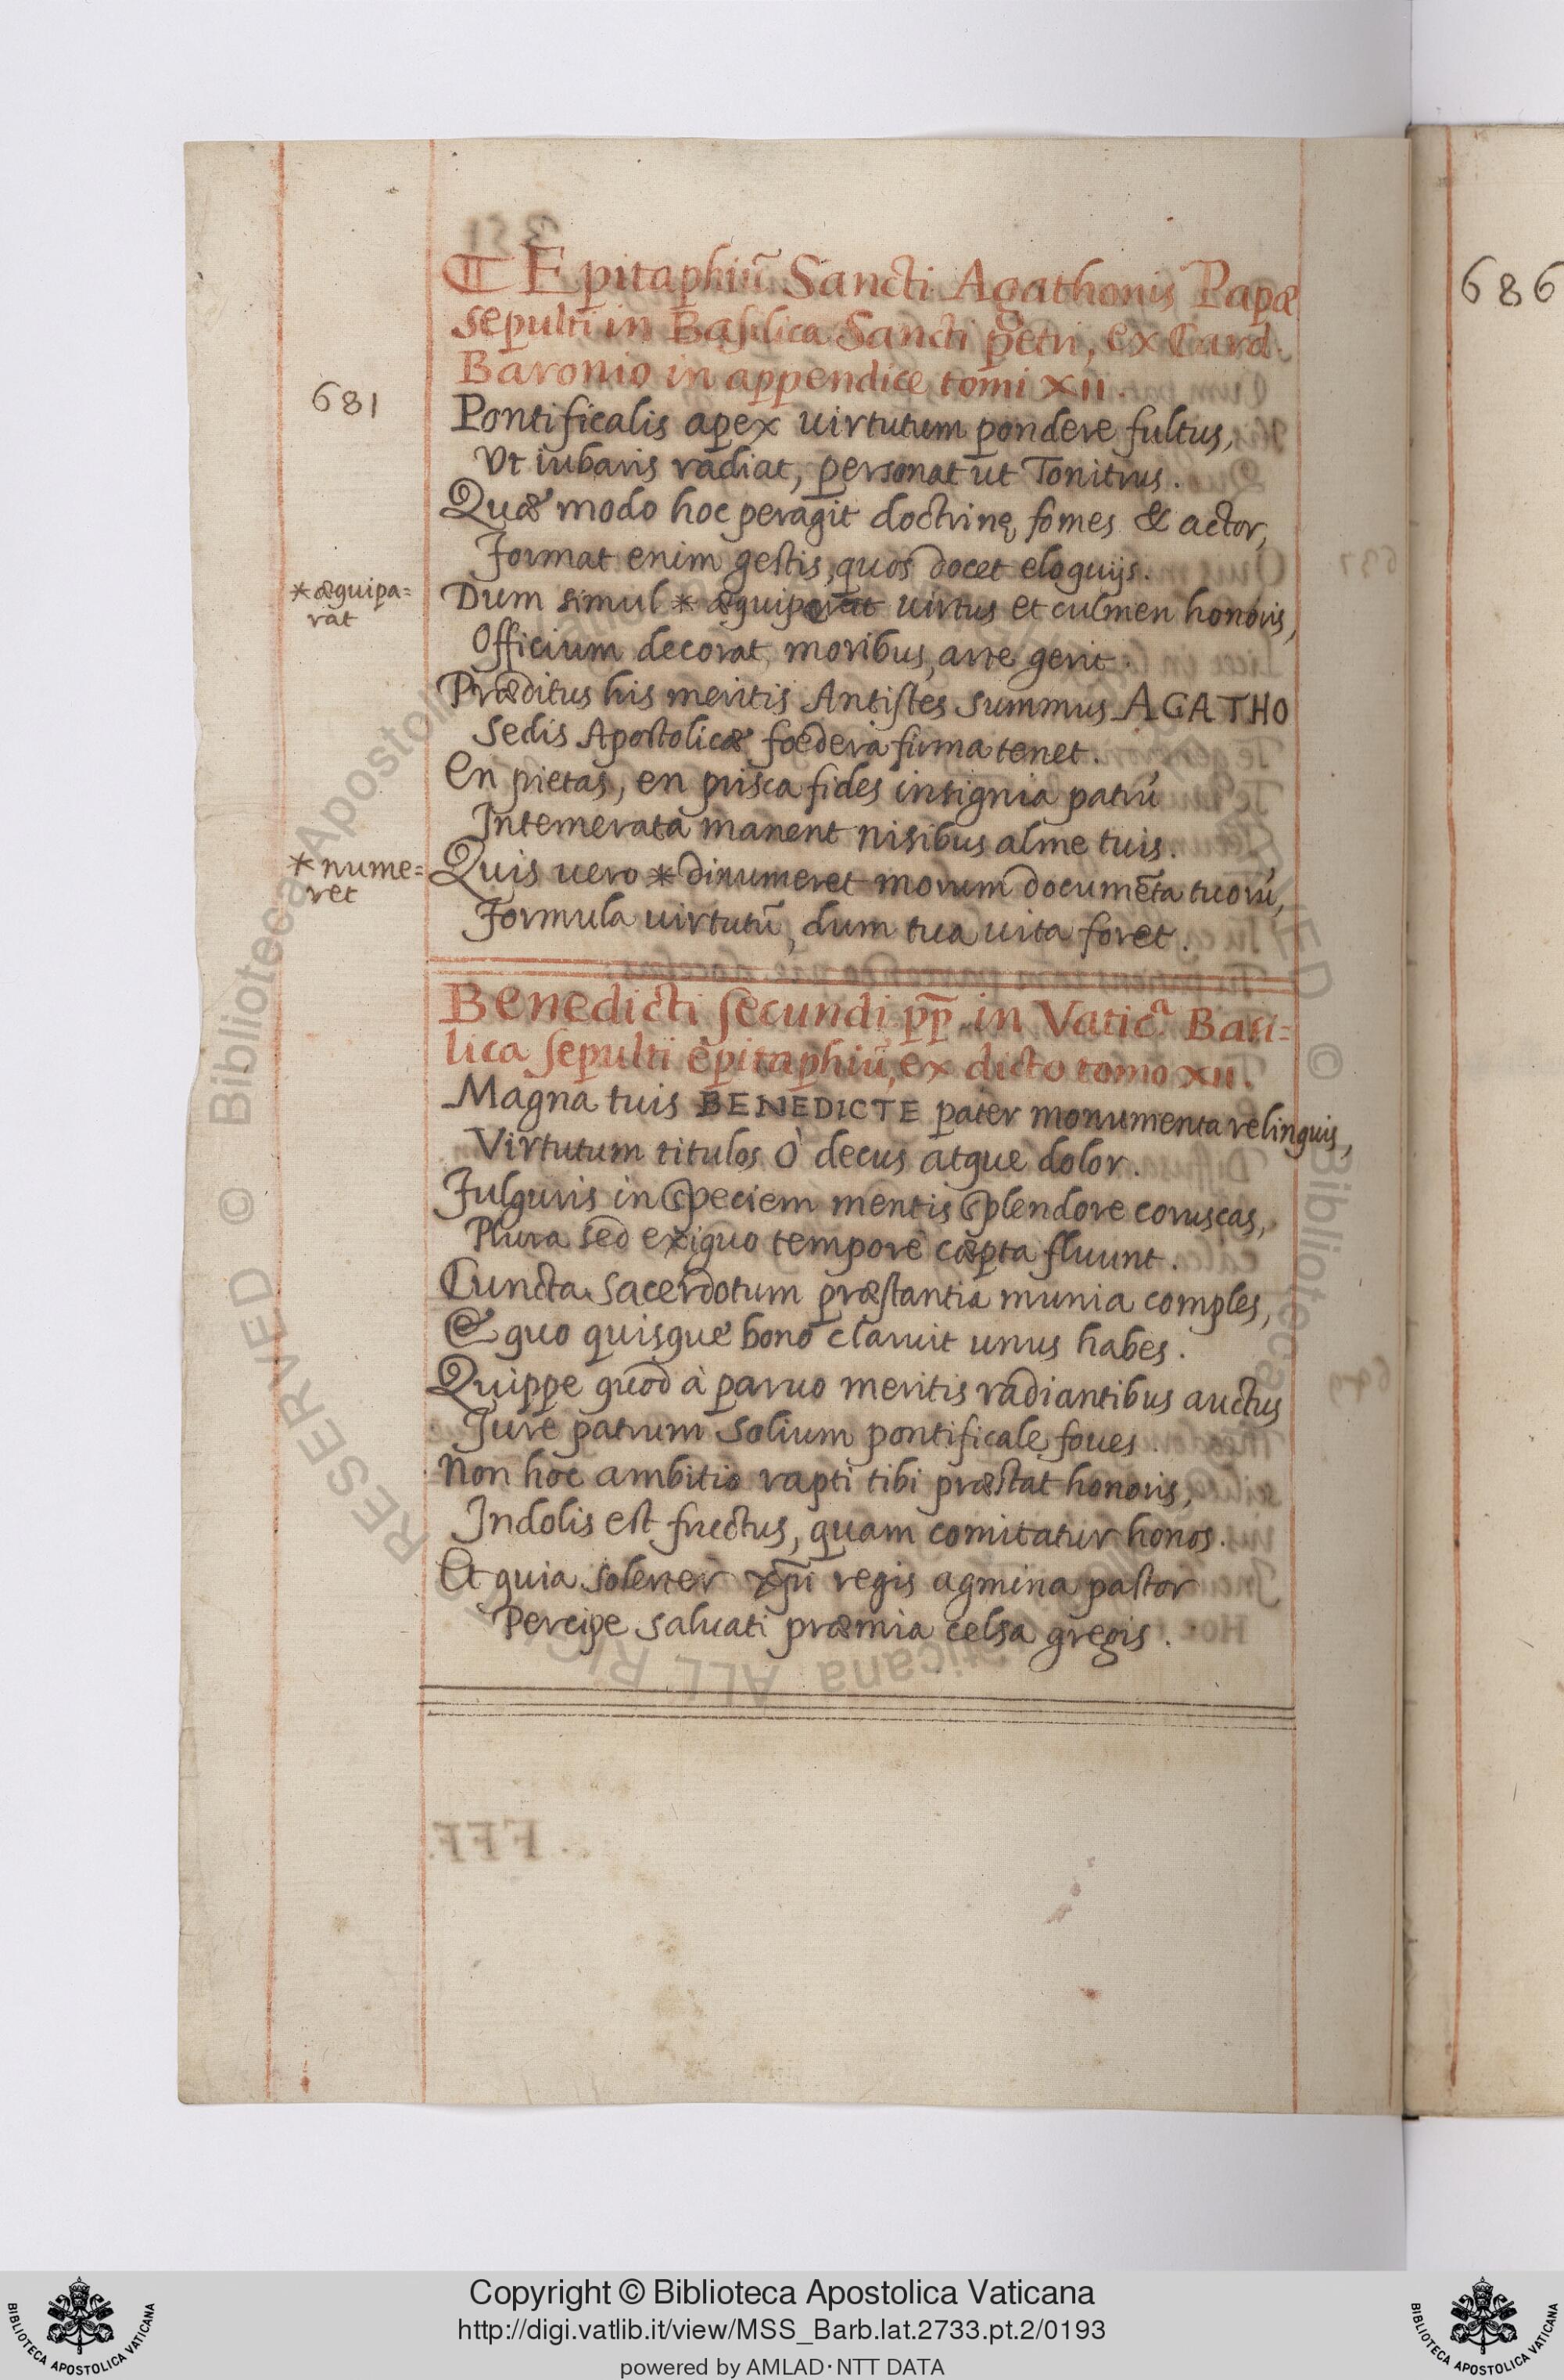 ¶ Epitaphiũ Sancti Agathonis Papæ
sepulti in Basilica Sancti Petri, ex Card.
Baronio in appendice tomi XII.
681
Pontificalis apex uirtutum pondere fultus,
Vt iubaris radiat, personat ut Tonitrus.
Quæ modo hoc peragit doctrinę fomes & actor,
Format enim gestis, quos docet eloquijs.
* æquipa=
rat
Dum simul * æquiperat uirtus et culmen honoris,
Officium decorat, moribus, arte gerit.
Præditus his meritis Antistes summus AGATHO
Sedis Apostolicæ foedera firma tenet.
En pietas, en prisca fides insignia patrũ
Intemerata manent nisibus alme tuis.
* nume=
ret
Quis uero * dinumeret morum documẽta tuorũ,
Formula uirtutũ, dum tua uita foret.
Benedicti secundi pp̃. in Vatic.ª Basi=
lica sepulti epitaphiũ, ex dicto tomo XII.
Magna tuis BENEDICTE pater monumenta relinquis,
Virtutum titulos ò decus atque dolor.
Fulguris in speciem mentis splendore coruscas,
Plura sed exiguo tempore cæpta fluunt.
Cuncta sacerdotum præstantia munia comples,
Et quo quisque bono claruit unus habes.
Quippe quod à paruo meritis radiantibus auctus
Jure patrum solium pontificale foues
Non hoc ambitio rapti tibi præstat honoris,
Indolis est fructus, quam comitatur honos.
Et quia solerter xp̃i regis agmina pastor
Percipe saluati præmia celsa gregis.
686
Copyright © Biblioteca Apostolica Vaticana
http://digi.vatlib.it/view/MSS_Barb.lat.2733.pt.2/0193
powered by AMLAD·NTT DATA
BIBLIOTECA APOSTOLICA VATICANA
BIBLIOTECA APOSTOLICA VATICANA